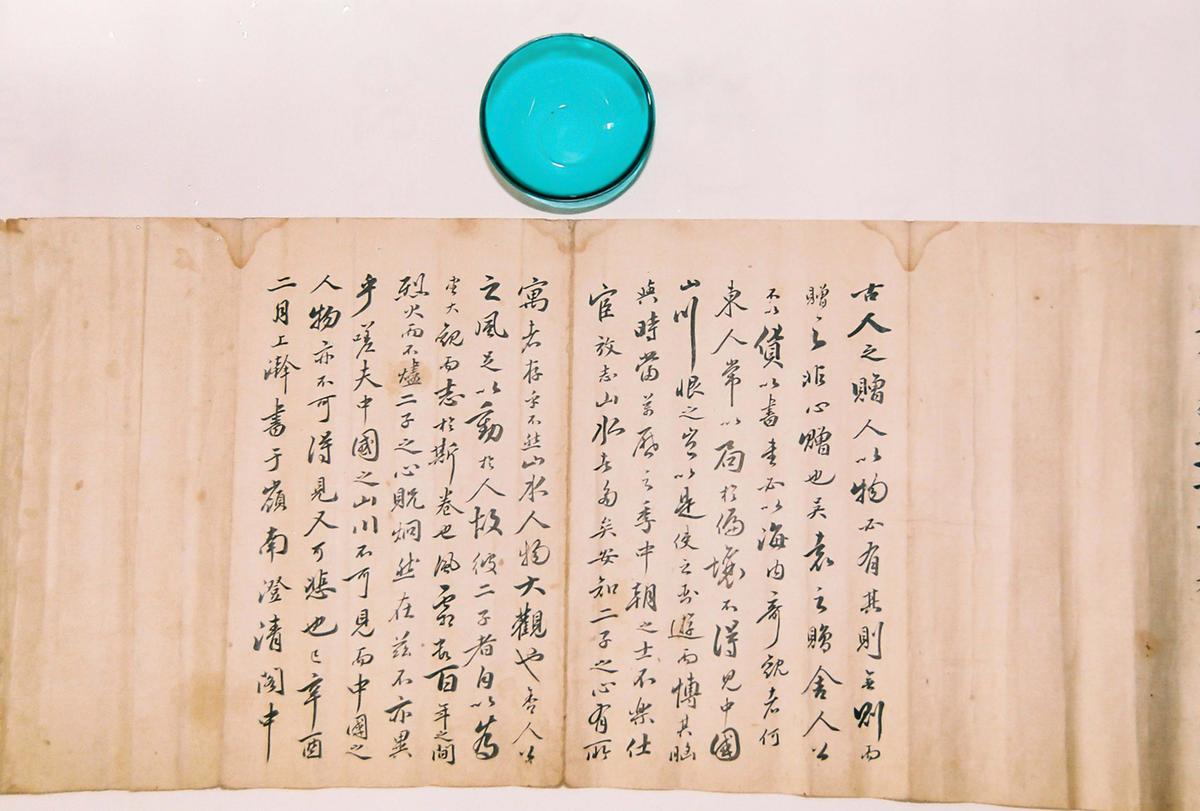 古人之贈人以物必有其則無則而
贈之非心贈也吳袁之贈舍人公
不以貨以書畫必以海內奇觀者何
東人常以局於偏壤不得見中國
山川恨之豈以是使之臥遊而博其胸
與時當萬曆之季中朝之士不樂仕
宦放志山水者多矣安知二子之心有所
寓者存乎不然山水人物大觀也吾人以
之風足以動於人故彼二子者自以為
大觀而志於斯卷也風霜表百年之間
烈火而不燼二子之心貺炯然在茲不亦異
乎嗟夫中國之山川不可見而中國之
人物亦不可得見又可悲也已辛酉
二月上澣書于嶺南澄清閣中